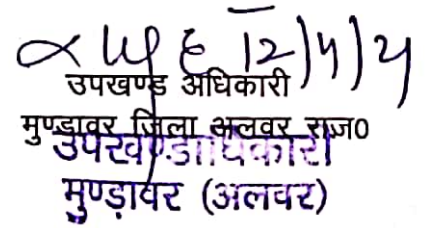 उपखण्ड अधिकारी
मुण्डावर जिला अलवर राज0
उपखण्डाधिकारी
मुण्ड़ावर (अलवर)